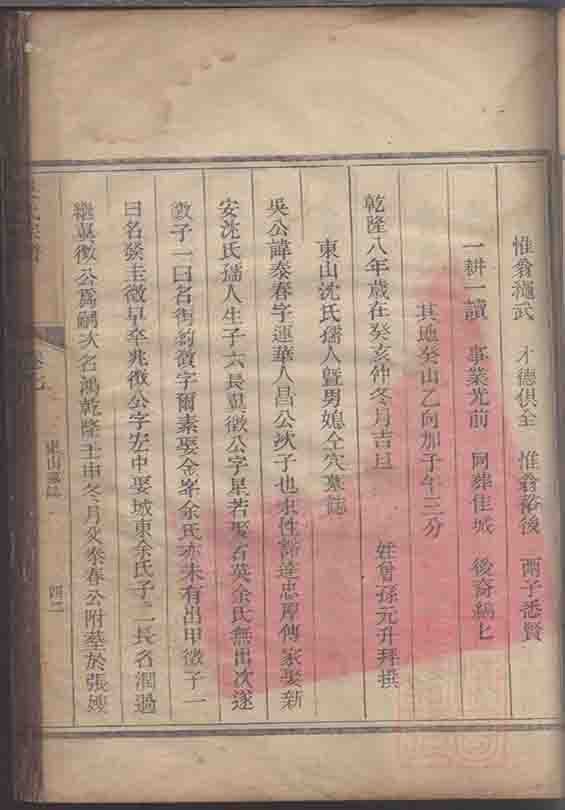 惟翁繩武 才德俱全 惟翁裕後 兩子悉賢
一耕一讀 事業光前 同葬佳城 後裔綿
其地癸山乙向加子午三分
乾隆八年歲在癸亥仲冬月吉旦 姪曾孫元升拜撰
東山沈氏孺人暨男媳仝穴墓誌
吳公諱泰春字運華人昌公次子也秉性豁達忠厚傳家娶新
安沈氏孺人生子六長異徵公字星若娶石英余氏無出次遂
徵子一曰名衡鈞徵字爾素娶金峯余氏亦未有出甲徵子一
曰名癸圭徵早卒兆徵公字宏中娶城東余氏子二長名潤過
繼異徵公爲嗣次名鴻乾隆壬申冬月父泰春公附塟於張嫂
東山墓誌
四二